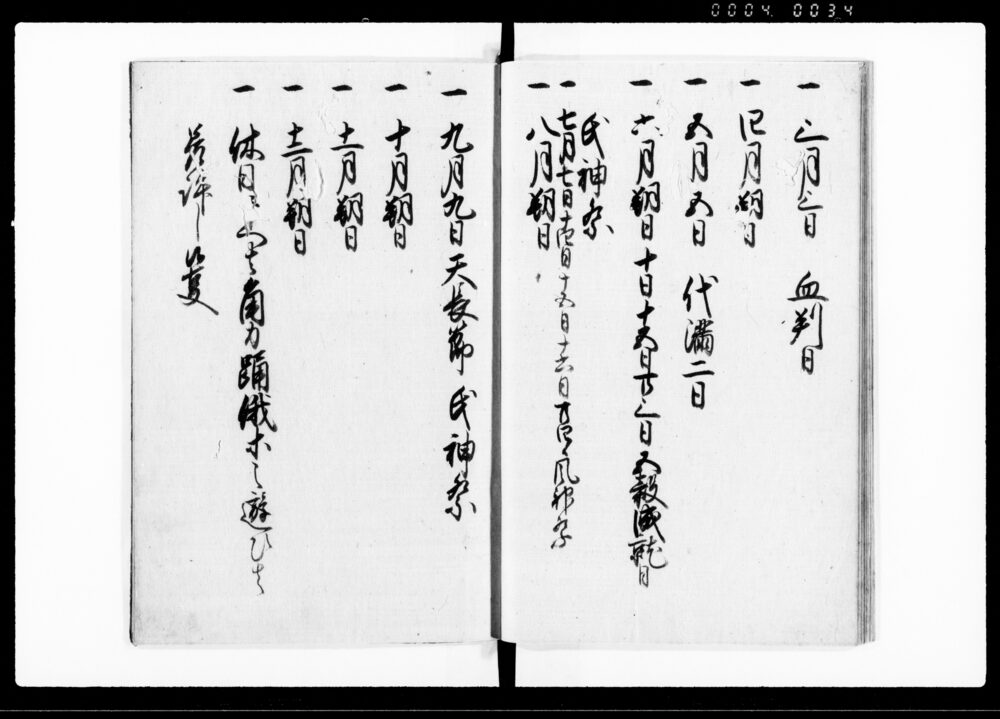 0004 0034
一 三月三日 血判日
一 四月朔日
一 五月五日 代満二日
一 六月朔日 十日 十五日 廿三日 五穀成就日
氏神祭
一 七月七日 十四日 十五日 十六日 廿四日 風神祭
一 八月朔日
一 九月九日 天長節 氏神祭
一 十月朔日
一 十一月朔日
一 十二月朔日
一 休日ニ 角力踊俄ホ之遊ひ